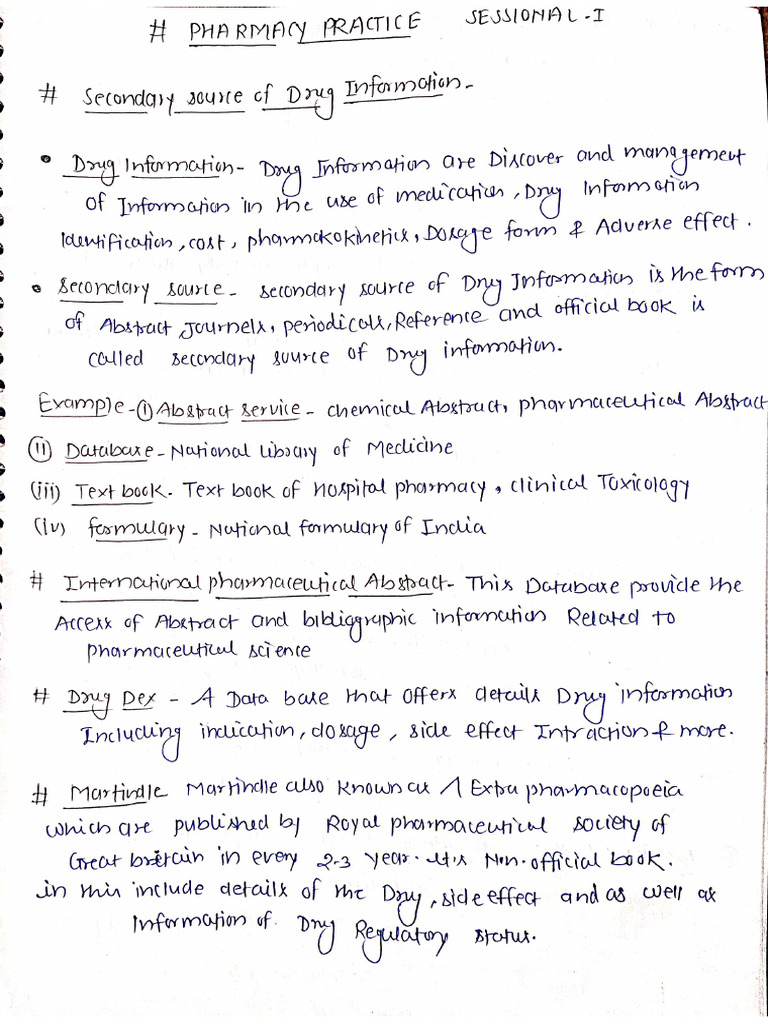 # PHARMACY PRACTICE SESSIONAL-I
# Secondary source of Drug Information-
• Drug Information- Drug Information are Discover and management
of Information in the use of medication, Drug Information
Identification, cost, pharmakokinetics, Dosage form & Adverse effect.
• Secondary source- secondary source of Drug Information is the form
of Abstract Journels, periodicals, Reference and official book is
called secondary source of Drug information.
Example-(i) Abstract service- chemical Abstract, pharmaceutical Abstract
(ii) Database-National library of Medicine
(iii) Text book- Text book of hospital pharmacy, clinical Toxicology
(iv) formulary-National formulary of India
# International pharmaceutical Abstract- This Database provide the
Access of Abstract and bibliggraphic information Related to
pharmaceutical science
# Drug Dex - A Data base that offers details Drug information
Including indication, dosage, side effect Intraction & more.
# Martindle Martindle also known as Extra pharmacopoeia
which are published by Royal pharmaceutical society of
Great bretain in every 2-3 year. It's Non-official book.
in this include details of the Drug, side effect and as well as
Information of. Drug Regulatory status.